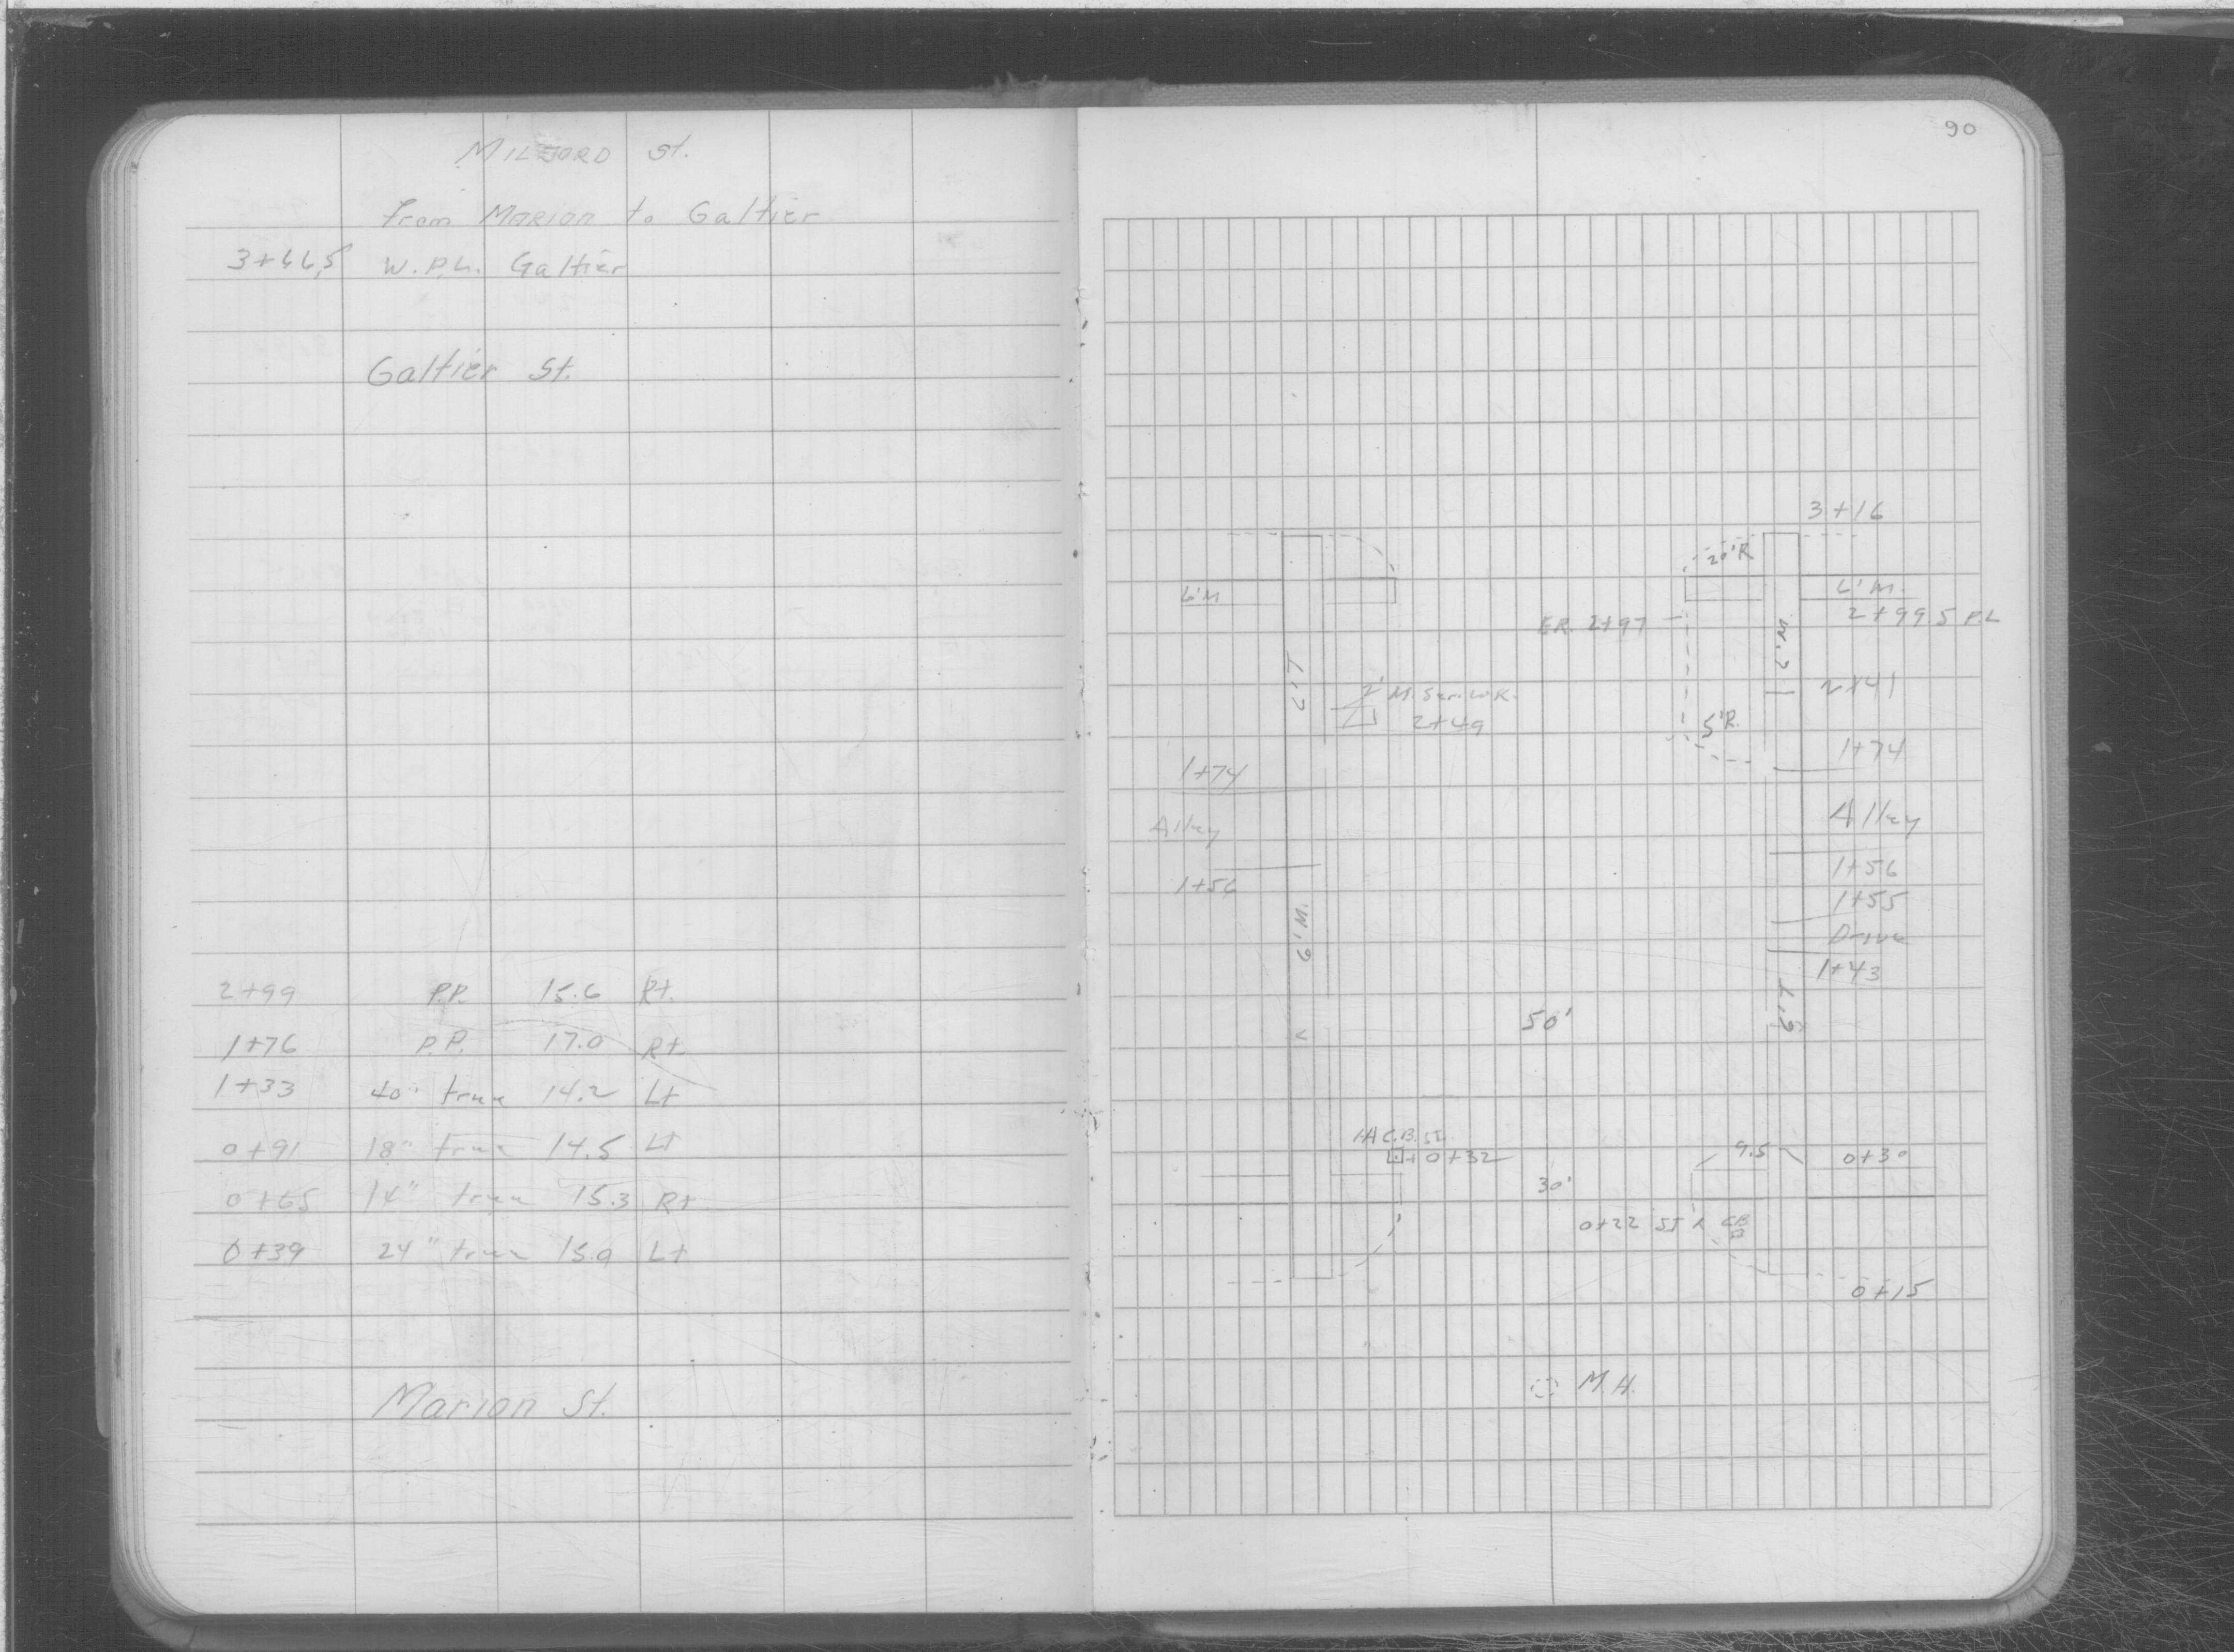 MILFORD St.
from MARION to Galtier
W.P.L. Galtier
Galtier St.
2+99 P.P. 15.6 Rt.
1+76 P.P. 17.0 Rt.
1+33 40" tree 14.2 Lt
0+91 18" tree 14.5 Lt
0+65 14" tree 15.3 Rt
0+39 24" tree 15.9 Lt
Marion St.
90
3+16
20'R
6'M 6'M.
2+99.5 P.L
E.R. 2+97
6'M.
6'T
2+41
2' M. Ser. Wk.
2+49
5'R.
1+74 1+74
Alley Alley
1+56 1+56
1+55
Drive
1+43
6'M.
6'T
50'
C.B.
0+32
9.5
0+30
30'
0+22 C.B.
0+15
M.H.